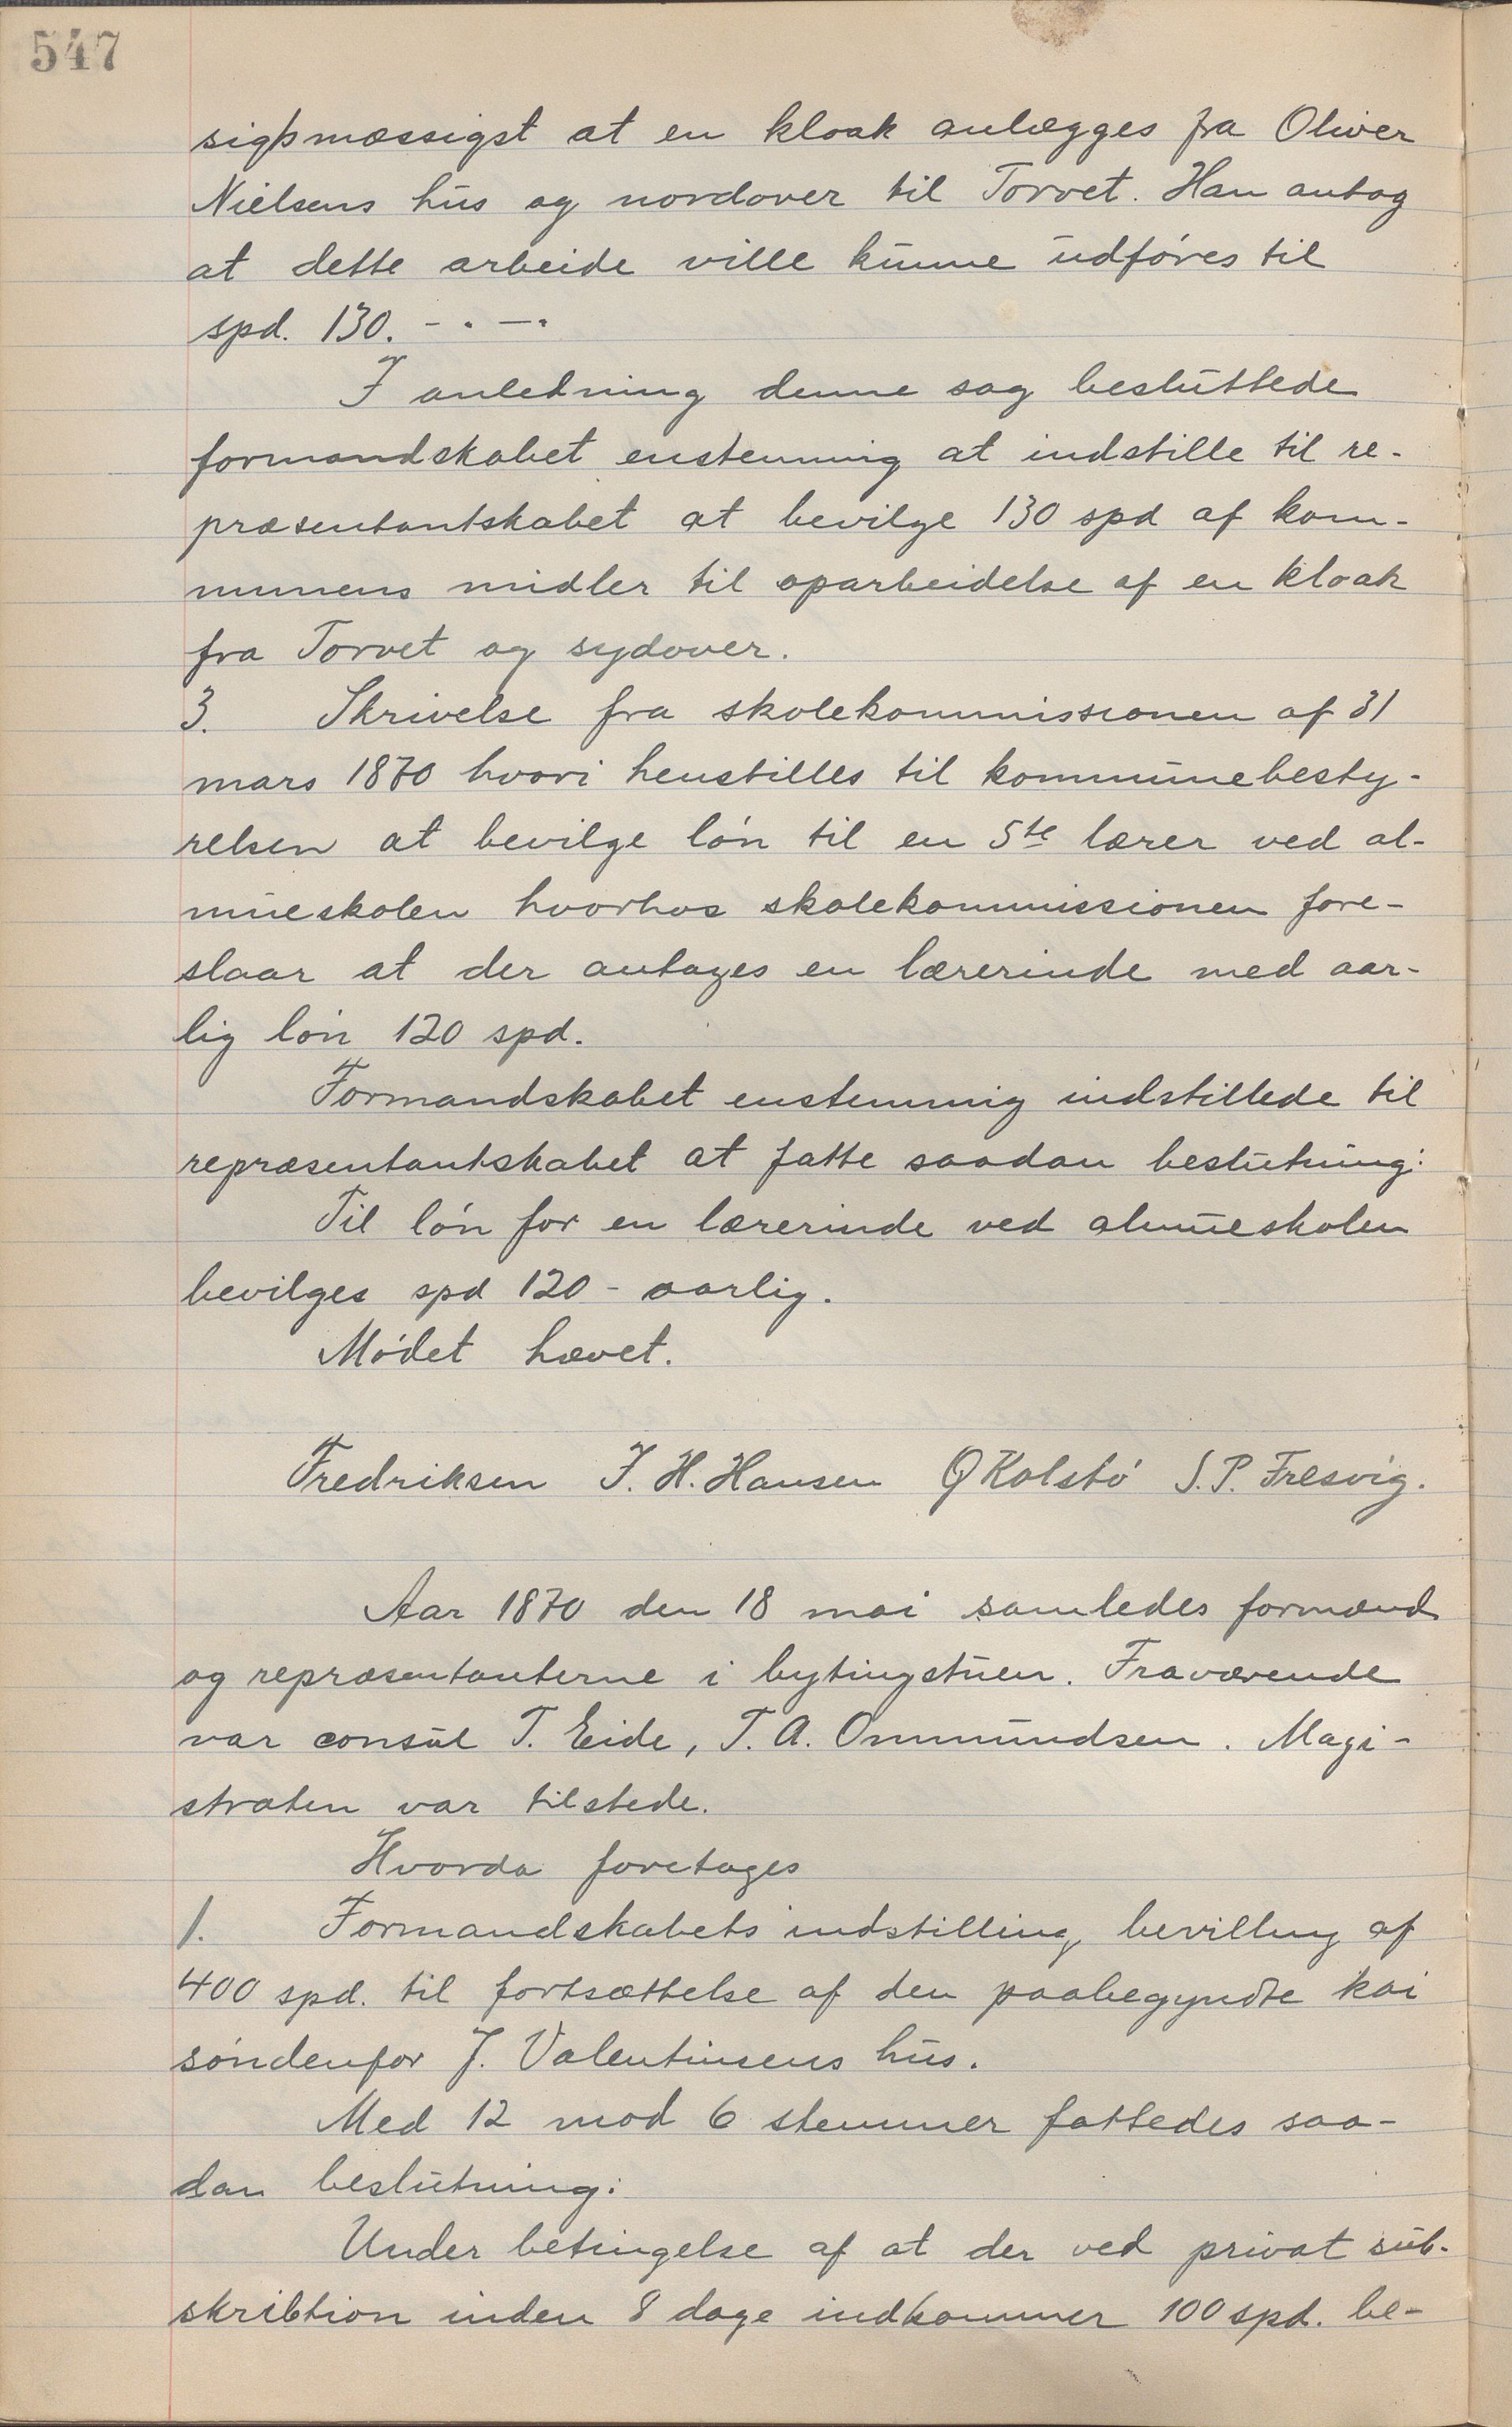 547
sigtsmæssigst at en kloak anlægges fra Oliver
Nielsens hus og nordover til Torvet. Han antog
at dette arbeide ville kunne udføres til
spd. 130. - . - .
I anledning denne sag besluttede
formandskabet enstemmig at indstille til re-
præsentantskabet at bevilge 130 spd af kom-
munens midler til oparbeidelse af en kloak
fra Torvet og sydover.
3. Skrivelse fra skolekommissionen af 31
mars 1870 hvori henstilles til kommunebesty-
relsen at bevilge løn til en 5te lærer ved al-
mueskolen hvorhos skolekommissionen fore-
slaar at der antages en lærerinde med aar-
lig løn 120 spd.
Formandskabet enstemmig indstillede til
repræsentantskabet at fatte saadan beslutning:
Til løn for en lærerinde ved almueskolen
bevilges spd 120 - aarlig.
Mødet hævet.
Fredriksen J. H. Hansen O Kolstø S. P. Fresvig.
Aar 1870 den 18 mai samledes formænd
og repræsentanterne i bytingstuen. Fraværende
var consul T. Eide, T. A. Ommundsen. Magi-
straten var tilstede.
Hvorda foretages
1. Formandskabets indstilling, bevilling af
400 spd. til fortsættelse af den paabegyndte kai
søndenfor J. Valentinsens hus.
Med 12 mod 6 stemmer fattedes saa-
dan beslutning:
Under betingelse af at der ved privat sub-
skribtion inden 8 dage indkommer 100 spd. be-